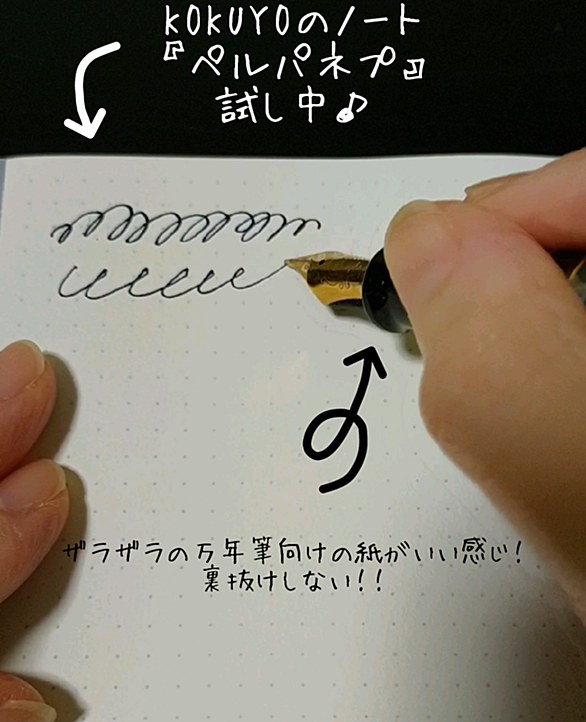 KOKUYOのノート
『ペルパネプ』
試し中♪
ザラザラの万年筆向けの紙がいい感じ!
裏抜けしない!!